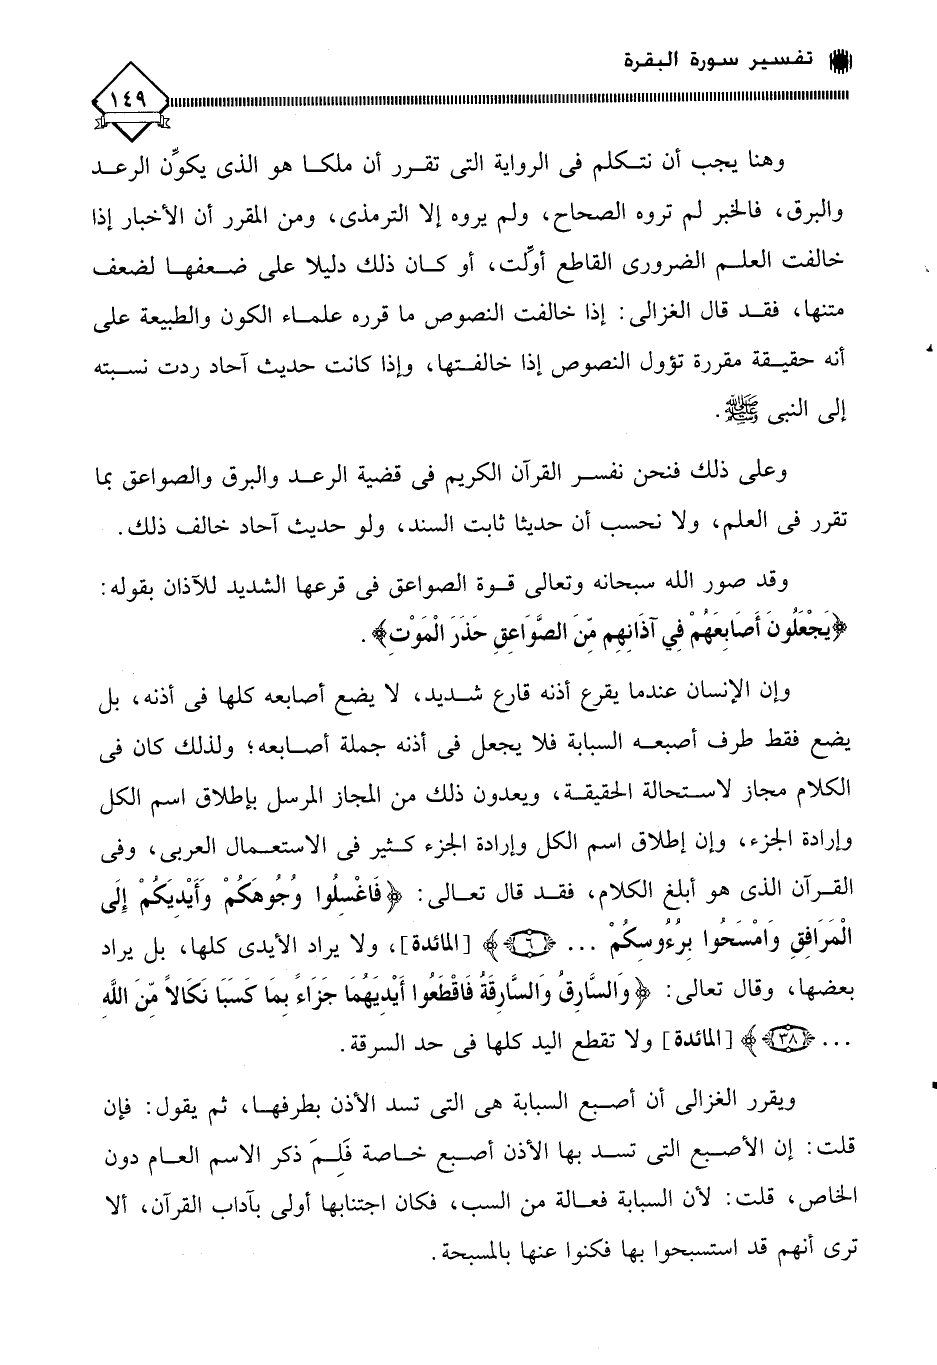 تفسير سورة البقرة
١٤٩
وهنا يجب أن نتكلم فى الرواية التى تقرر أن ملكا هو الذى يكوِّن الرعد
والبرق، فالخبر لم تروه الصحاح، ولم يروه إلا الترمذى، ومن المقرر أن الأخبار إذا
خالفت العلم الضرورى القاطع أولِّت، أو كان ذلك دليلا على ضعفها لضعف
متنها، فقد قال الغزالى: إذا خالفت النصوص ما قرره علماء الكون والطبيعة على
أنه حقيقة مقررة تؤول النصوص إذا خالفتها، وإذا كانت حديث آحاد ردت نسبته
إلى النبى ﷺ.
وعلى ذلك فنحن نفسر القرآن الكريم فى قضية الرعد والبرق والصواعق بما
تقرر فى العلم، ولا نحسب أن حديثا ثابت السند، ولو حديث آحاد خالف ذلك.
وقد صور الله سبحانه وتعالى قوة الصواعق فى قرعها الشديد للآذان بقوله:
﴿يَجْعَلُونَ أَصَابِعَهُمْ فِي آذَانِهِم مِّنَ الصَّوَاعِقِ حَذَرَ الْمَوْتِ﴾.
وإن الإنسان عندما يقرع أذنه قارع شديد، لا يضع أصابعه كلها فى أذنه، بل
يضع فقط طرف أصبعه السبابة فلا يجعل فى أذنه جملة أصابعه؛ ولذلك كان فى
الكلام مجاز لاستحالة الحقيقة، ويعدون ذلك من المجاز المرسل بإطلاق اسم الكل
وإرادة الجزء، وإن إطلاق اسم الكل وإرادة الجزء كثير فى الاستعمال العربى، وفى
القرآن الذى هو أبلغ الكلام، فقد قال تعالى: ﴿فَاغْسِلُوا وُجُوهَكُمْ وَأَيْدِيَكُمْ إِلَى
الْمَرَافِقِ وَامْسَحُوا بِرُءُوسِكُمْ ... ﴿٦﴾﴾ [المائدة]، ولا يراد الأيدى كلها، بل يراد
بعضها، وقال تعالى: ﴿وَالسَّارِقُ وَالسَّارِقَةُ فَاقْطَعُوا أَيْدِيَهُمَا جَزَاءً بِمَا كَسَبَا نَكَالاً مِّنَ اللَّهِ
... ﴿٣٨﴾﴾ [المائدة] ولا تقطع اليد كلها فى حد السرقة.
ويقرر الغزالى أن أصبع السبابة هى التى تسد الأذن بطرفها، ثم يقول: فإن
قلت: إن الأصبع التى تسد بها الأذن أصبع خاصة فَلِمَ ذكر الاسم العام دون
الخاص، قلت: لأن السبابة فعالة من السب، فكان اجتنابها أولى بآداب القرآن، ألا
ترى أنهم قد استسبحوا بها فكنوا عنها بالمسبحة.